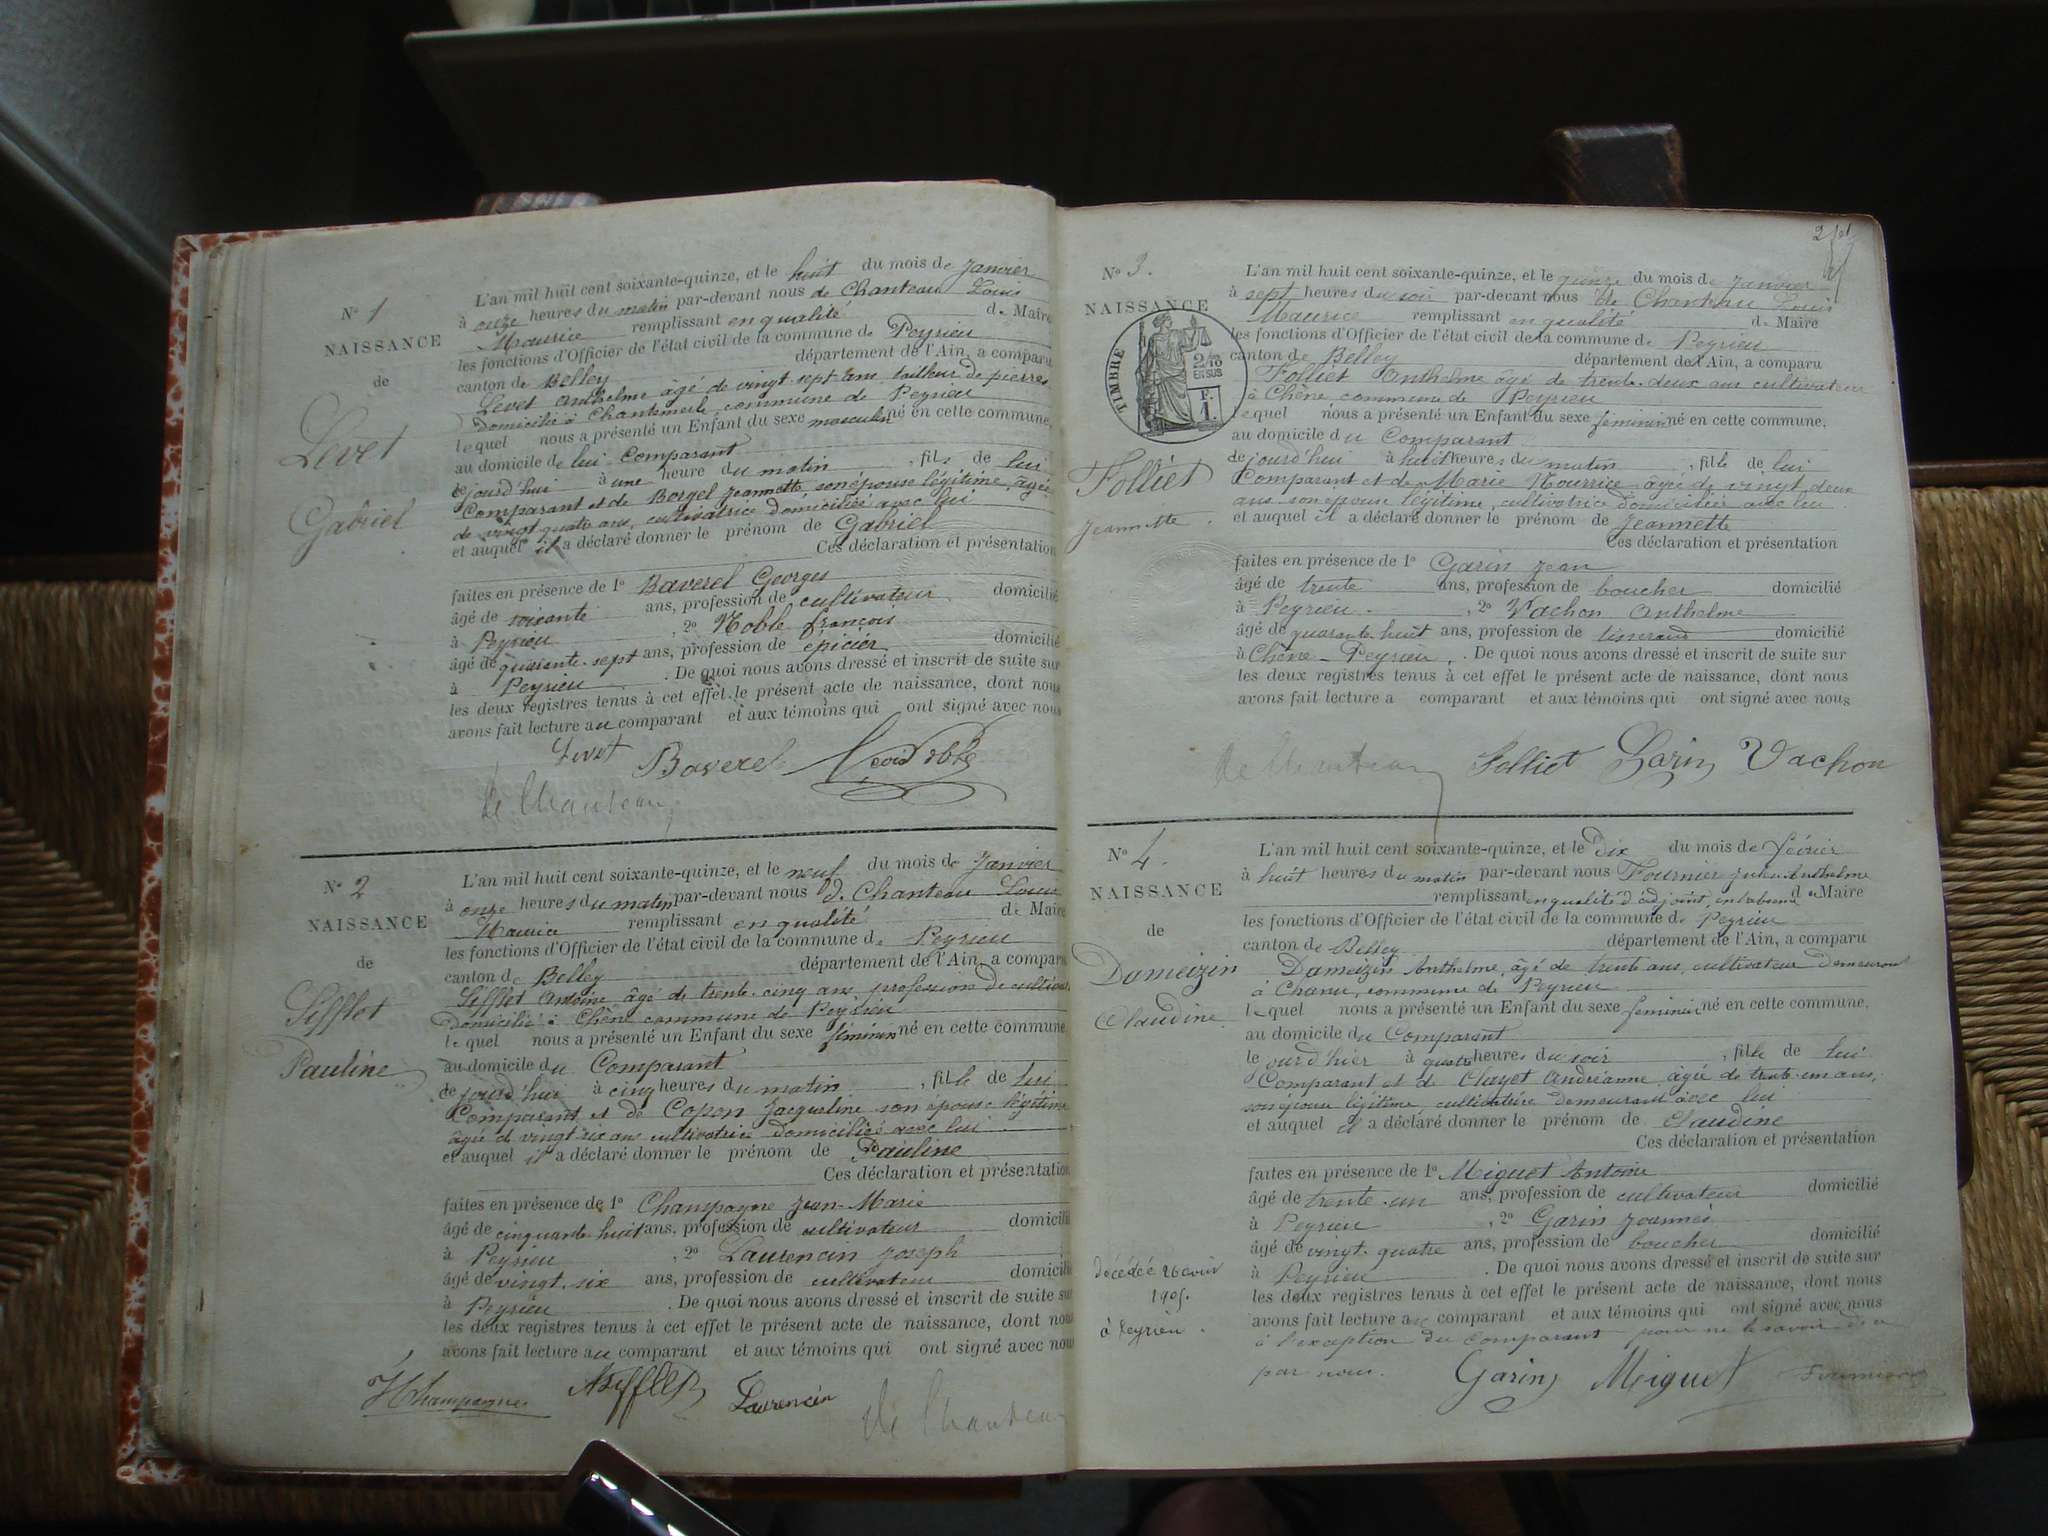 N° 1
NAISSANCE
de
Levet
Gabriel
L'an mil huit cent soixante-quinze, et le huit du mois de Janvier
à onze heures du matin par-devant nous de Chanteau Louis
Maurice remplissant en qualité de Maire
les fonctions d'Officier de l'état civil de la commune de Peyrieu
canton de Belley département de l'Ain, a comparu
Levet Anthelme âgé de vingt-sept ans, tailleur de pierres
domicilié à Chantemerle, commune de Peyrieu
lequel nous a présenté un Enfant du sexe masculin né en cette commune,
au domicile de lui Comparant
de jourd'hui à une heure du matin , fils de lui
Comparant et de Borgel Jeannette son épouse légitime, âgée
de vingt quatre ans, cultivatrice domiciliée avec lui
et auquel il a déclaré donner le prénom de Gabriel
Ces déclaration et présentation
faites en présence de 1° Baverel Georges
âgé de soixante ans, profession de cultivateur domicilié
à Peyrieu , 2° Noble françois
âgé de quarante-sept ans, profession de épicier domicilié
à Peyrieu . De quoi nous avons dressé et inscrit de suite sur
les deux registres tenus à cet effet le présent acte de naissance, dont nous
avons fait lecture au comparant et aux témoins qui ont signé avec nous
Levet Baverel Noble
de Chanteau
N° 2
NAISSANCE
de
Sifflet
Pauline
L'an mil huit cent soixante-quinze, et le neuf du mois de Janvier
à onze heures du matin par-devant nous de Chanteau Louis
Maurice remplissant en qualité de Maire
les fonctions d'Officier de l'état civil de la commune de Peyrieu
canton de Belley département de l'Ain, a comparu
Sifflet Antoine, âgé de trente-cinq ans, profession de cultivat
domicilié à Chêne commune de Peyrieu
lequel nous a présenté un Enfant du sexe féminin né en cette commune,
au domicile du Comparant
de jourd'hui à cinq heures du matin , fille de lui
Comparant, et de Copon Jacqueline son épouse légitime
âgée de vingt six ans cultivatrice domiciliée avec lui
et auquel il a déclaré donner le prénom de Pauline
Ces déclaration et présentation
faites en présence de 1° Champagne Jean-Marie
âgé de cinquante huit ans, profession de cultivateur domicilié
à Peyrieu , 2° Laurencin Joseph
âgé de vingt-six ans, profession de cultivateur domicilié
à Peyrieu . De quoi nous avons dressé et inscrit de suite sur
les deux registres tenus à cet effet le présent acte de naissance, dont nous
avons fait lecture au comparant et aux témoins qui ont signé avec nous
Champagne Sifflet Laurencin de Chanteau
N° 3.
NAISSANCE
TIMBRE
2/10
EN SUS
F.
1.
Folliet
Jeannette.
L'an mil huit cent soixante-quinze, et le quinze du mois de Janvier
à sept heures du soir par-devant nous de Chanteau Louis
Maurice remplissant en qualité de Maire
les fonctions d'Officier de l'état civil de la commune de Peyrieu
canton de Belley département de l'Ain, a comparu
Folliet Anthelme âgé de trente-deux ans cultivateur
à Chêne commune de Peyrieu
lequel nous a présenté un Enfant du sexe féminin né en cette commune,
au domicile du Comparant
de jourd'hui à huit heures du matin , fille de lui
Comparant et de Marie Nourrice âgée de vingt deux
ans son épouse légitime, cultivatrice domiciliée avec lui
et auquel il a déclaré donner le prénom de Jeannette
Ces déclaration et présentation
faites en présence de 1° Garin Jean
âgé de trente ans, profession de boucher domicilié
à Peyrieu. , 2° Vachon Anthelme
âgé de quarante huit ans, profession de tisserand domicilié
à Chêne-Peyrieu. . De quoi nous avons dressé et inscrit de suite sur
les deux registres tenus à cet effet le présent acte de naissance, dont nous
avons fait lecture a comparant et aux témoins qui ont signé avec nous
de Chanteau Folliet Garin Vachon
N° 4.
NAISSANCE
de
Dameizin
Claudine
décédée 26
1905.
à Peyrieu.
L'an mil huit cent soixante-quinze, et le Dix du mois de février
à huit heures du matin par-devant nous Fournier Anthelme
remplissant en qualité d'adjoint, en l'absence de Maire
les fonctions d'Officier de l'état civil de la commune de Peyrieu
canton de Belley département de l'Ain, a comparu
Dameizin Anthelme, âgé de trente ans, cultivateur demeurant
à commune de Peyrieu
lequel nous a présenté un Enfant du sexe féminin né en cette commune,
au domicile du Comparant
le jour d'hier à quatre heures du soir , fille de lui
Comparant et de Clayet Andrianne, âgée de trente-un ans,
son épouse légitime, cultivatrice demeurant avec lui
et auquel il a déclaré donner le prénom de Claudine
Ces déclaration et présentation
faites en présence de 1° Miguet Antoine
âgé de trente-un ans, profession de cultivateur domicilié
à Peyrieu , 2° Garin Joannès
âgé de vingt-quatre ans, profession de boucher domicilié
à Peyrieu . De quoi nous avons dressé et inscrit de suite sur
les deux registres tenus à cet effet le présent acte de naissance, dont nous
avons fait lecture au comparant et aux témoins qui ont signé avec nous
à l'exception du comparant pour ne le savoir
par nous. Garin Miguet Fournier